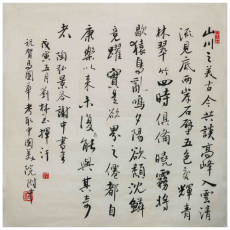 山川之美古今共談高峰入雲清
流見底兩岸石壁五色交輝青
林翠竹四時俱備曉霧將
歇猿鳥亂鳴夕陽欲頹沈鱗
競躍實是欲界之仙都自
康樂以來未復能與其奇
者 陶弘景答謝中書書
戊寅五月劉林玉揮汗